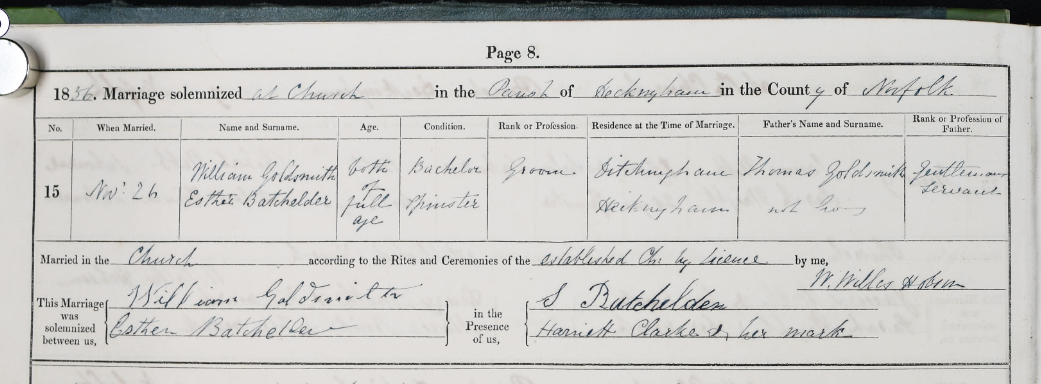 Page 8.
1856. Marriage solemnized at Church in the Parish of Heckingham in the County of Norfolk
No. When Married. Name and Surname. Age. Condition. Rank or Profession. Residence at the Time of Marriage. Father's Name and Surname. Rank or Profession of Father.
15 Novr 26 William Goldsmith both of full age Bachelor Groom Ditchingham Thomas Goldsmith Gentlemans Servant
Esther Batchelder Spinster Heckingham not
Married in the Church according to the Rites and Ceremonies of the established Ch. by licence by me,
W. Willes Hobson
This Marriage was solemnized between us, William Goldsmith in the Presence of us, S Batchelder
Esther Batchelder Harriett Clarke her mark